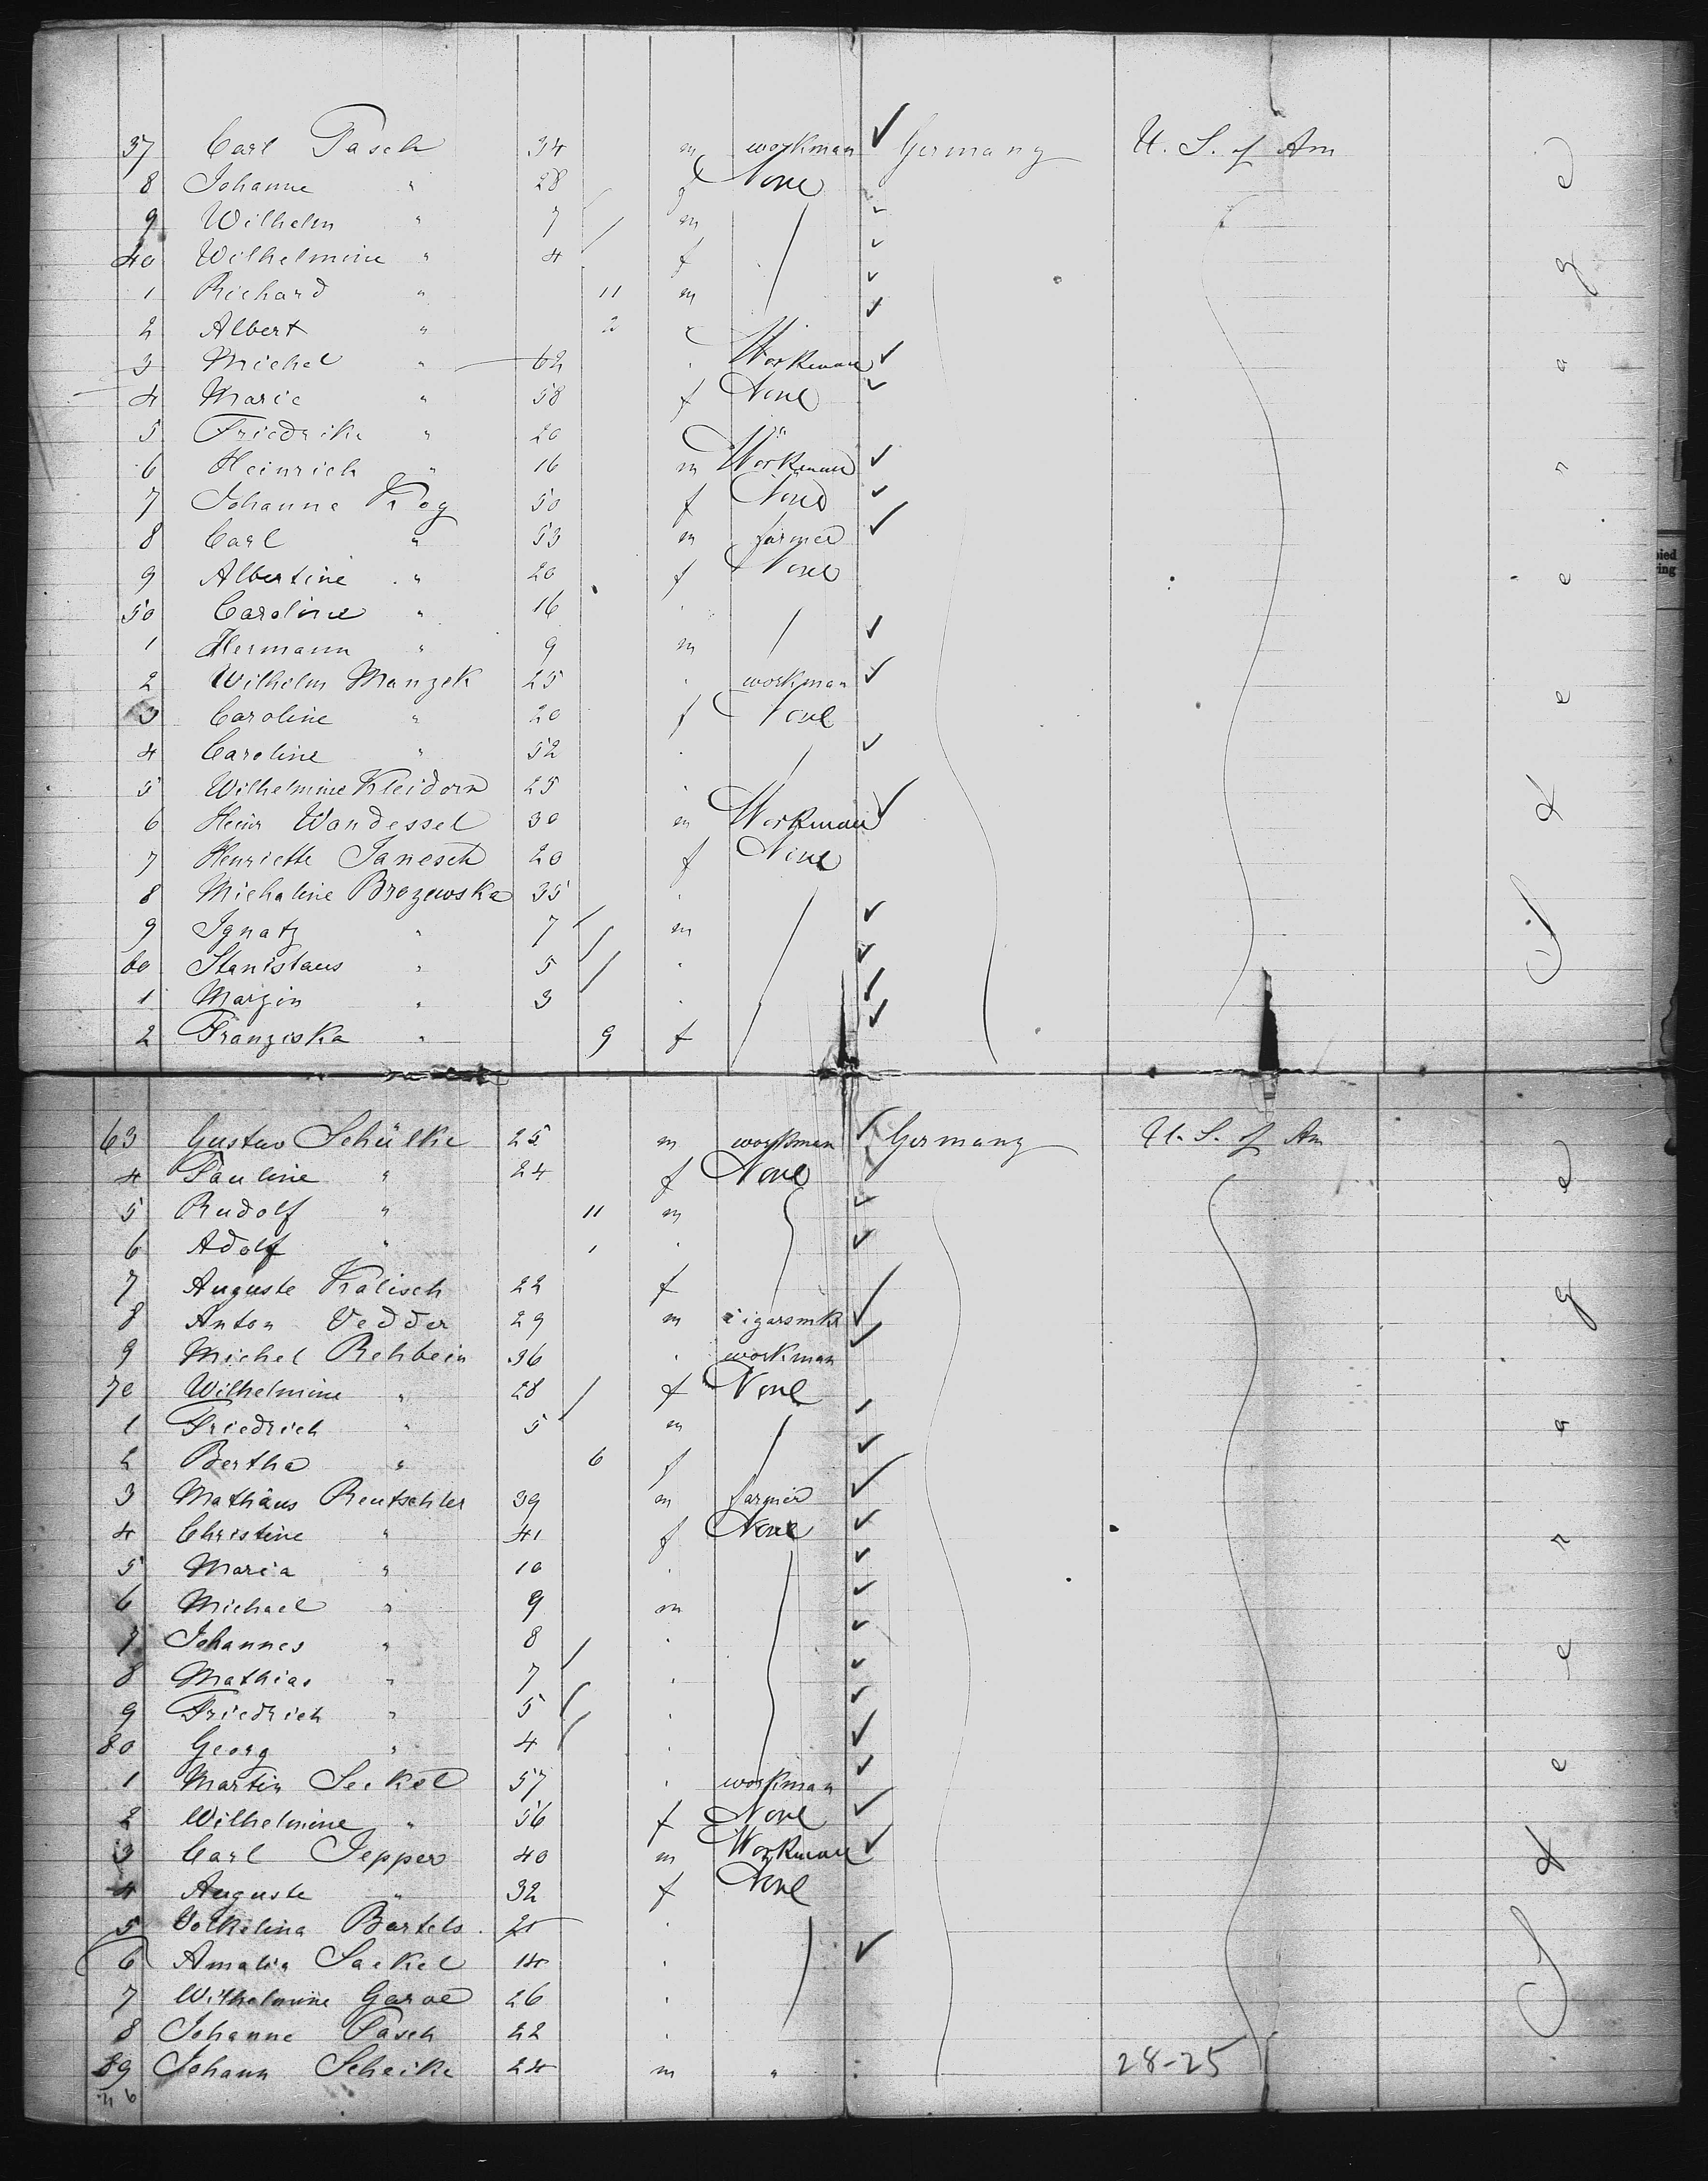 37 Carl Pasch 34 m workman Germany U. S. of Am
8 Johanne " 28 f None
9 Wilhelm " 7 m
40 Wilhelmine " 4 f
1 Richard " 11 m
2 Albert " 2 "
3 Michel " 62 " Workman
4 Marie " 58 f None
5 Friedrike " 20 "
6 Heinrich " 16 m Workman
7 Johanna Krog 50 f None
8 Carl " 53 m farmer
9 Albertine " 20 f None
50 Caroline " 16 "
1 Hermann " 9 m
2 Wilhelm Manzek 25 " workman
3 Caroline " 20 f None
4 Caroline " 52 "
5 Wilhelmine Kleidorn 25 "
6 Heinr Wandessel 30 m Workman
7 Henriette Janesch 20 f None
8 Michaline Brozewska 35 "
9 Ignatz " 7 m
60 Stanislaus " 5 "
1 Marzin " 3 "
2 Franziska " 9 f
Steerage
63 Gustav Schülke 25 m workman Germany U. S. of Am
4 Pauline " 24 f None
5 Rudolf " 11 m
6 Adolf " 1 "
7 Auguste Kalisch 22 f
8 Anton Vedder 29 m cigarsmkr
9 Michel Rehbein 36 " workman
70 Wilhelmine " 28 f None
1 Friedrich " 5 m
2 Bertha " 6 f
3 Mathäus Rentschler 39 m farmer
4 Christine " 41 f None
5 Maria " 10 "
6 Michael " 9 m
7 Johannes " 8 "
8 Mathias " 7 "
9 Friedrich " 5 "
80 Georg " 4 "
1 Martin Seekel 57 " workman
2 Wilhelmine " 56 f None
3 Carl Jepper 40 m Workman
4 Auguste " 32 f None
5 Volkelina Bartels "
6 Amalia Saekel 14 "
7 Wilhelmine Garve 26 "
8 Johanne Pasch 22 "
89 Johann Scheike 24 m "
28-25
Steerage